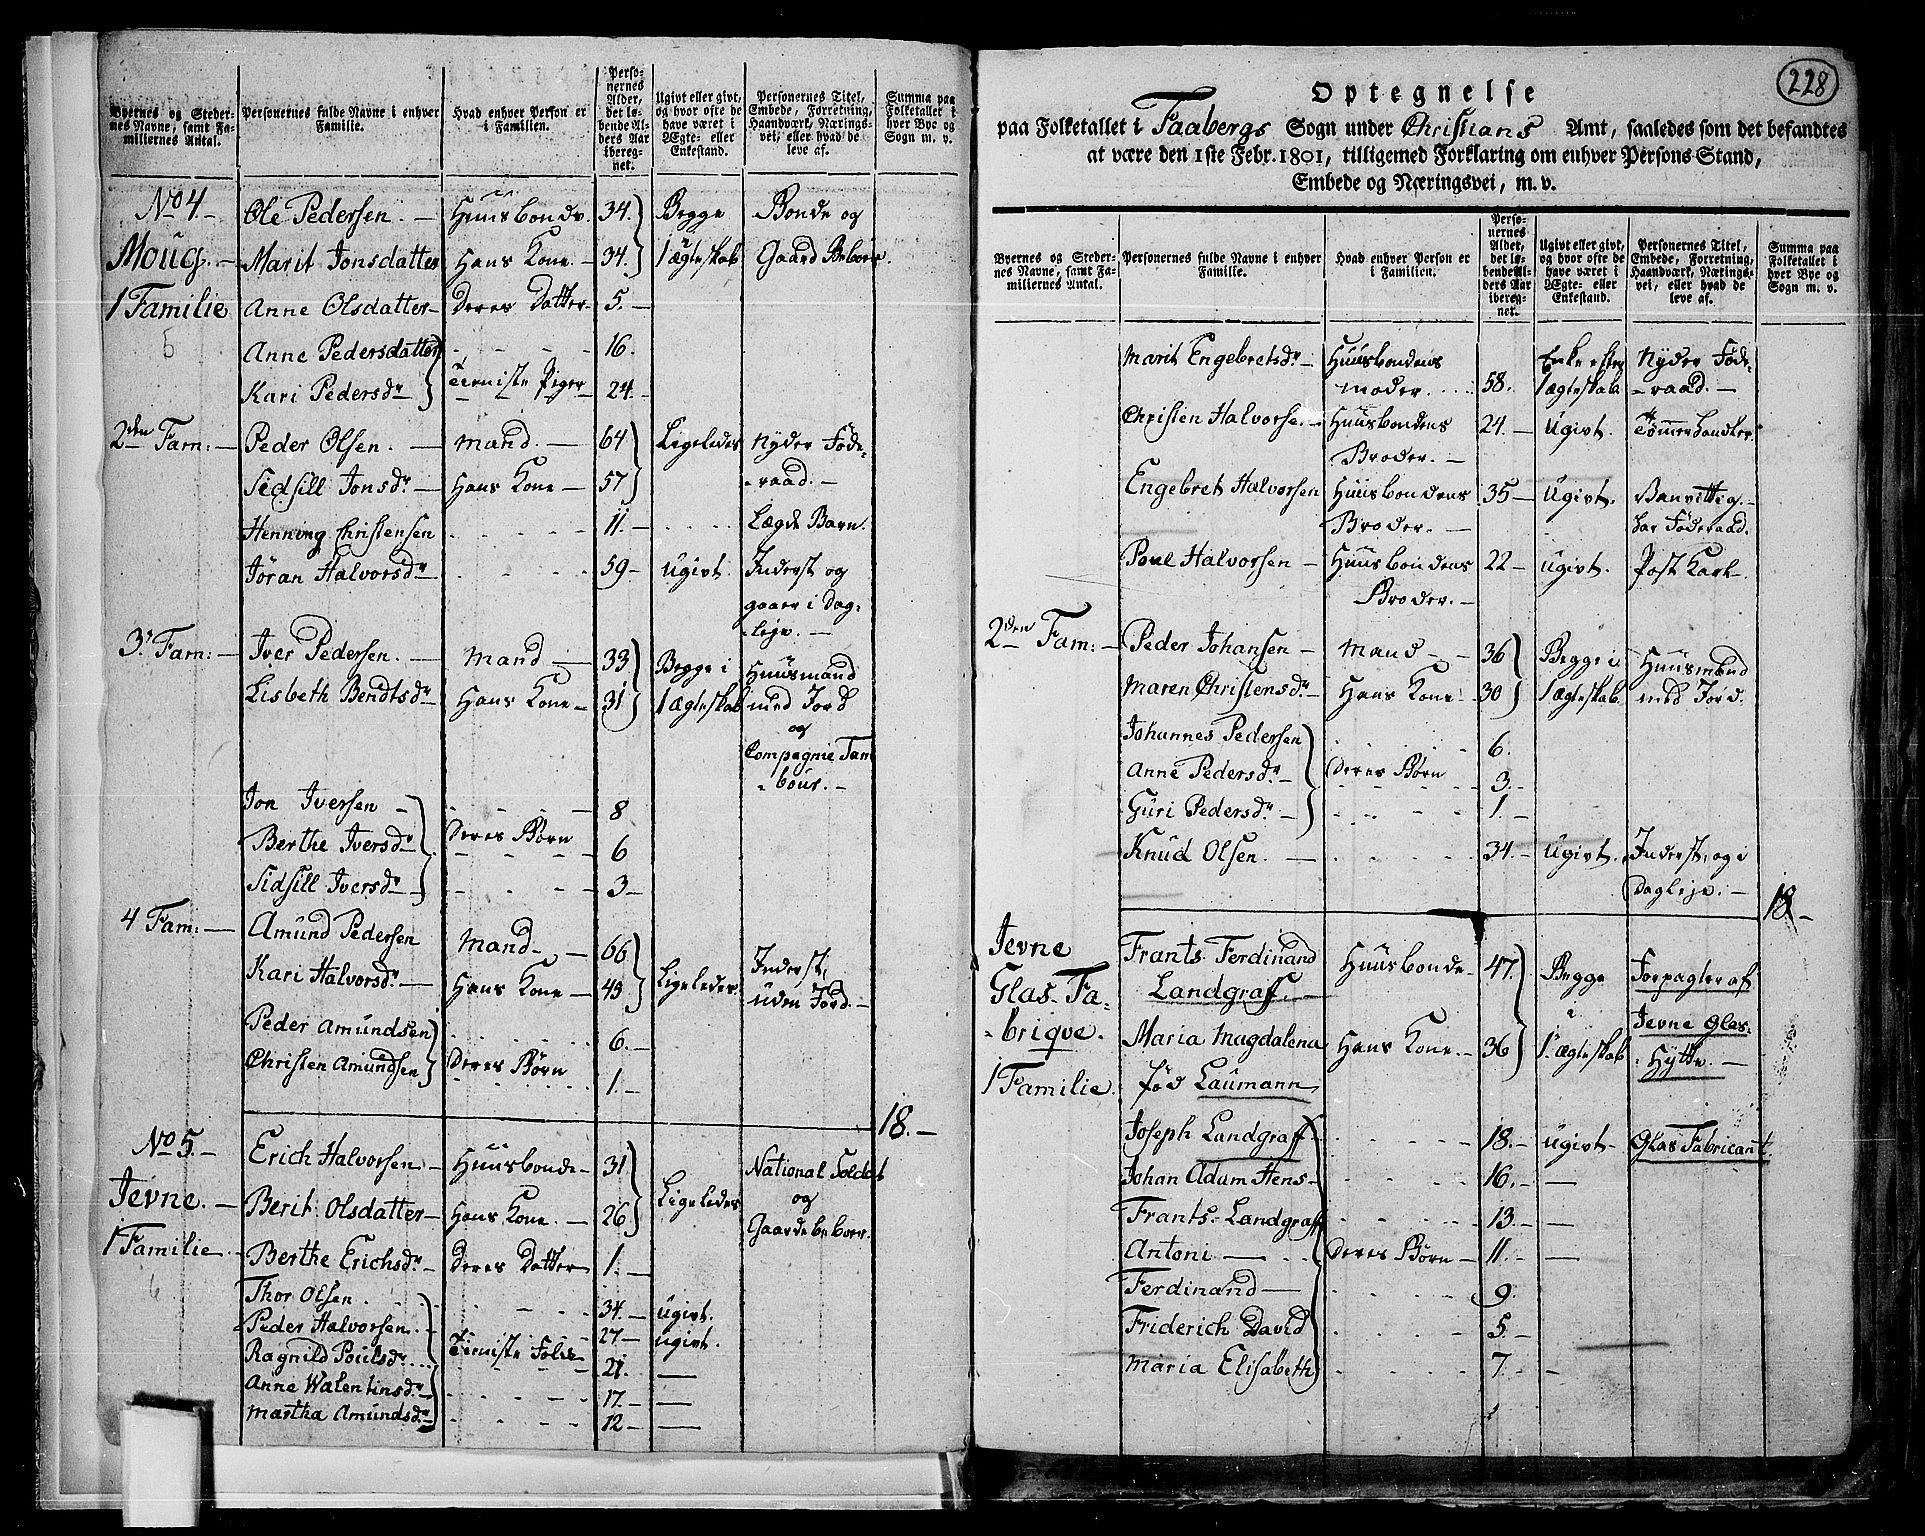 Byernes og Steder-
nes Navne, samt Fa-
miliernes Antal.
Personernes fulde Navne i enhver
Familie.
Hvad enhver Person er
i Familien.
Perso-
nernes
Alder,
det lø-
bende Al-
ders Aar
ibereg-
net.
Ugivt eller givt,
og hvor ofte de
have været i
Ægte- eller
Enkestand.
Personernes Titel,
Embede, Forretning,
Haandværk, Nærings-
vei, eller hvad de
leve af.
Summa paa
Folketallet i
hver Bye og
Sogn m. v.
No 4 Ole Pedersen. Huusbonde. 34. Begge Bonde og
Moug. Marit Jonsdatter Hans Kone 34. i 1 ægteskab Gaard Beboer
1 Familie Anne Olsdatter Deres Datter 5.
5 Anne Pedersdatter 16.
Kari Pedersdr Tieniste Piger 24.
2den Fam: Peder Olsen. Mand 64 Ligeledes Nyder Föde-
Sidsill Jonsdr Hans Kone 57 raad.
Henning Christensen 11. Lægds Barn.
Jöran Halvorsdr 59 ugivt. Inderst og
gaaer i Dag-
leje.
3. Fam: Iver Pedersen. Mand 33 Begge i Huusmand
Lisbeth Bendtsdr Hans Kone 31 1 ægteskab med Jord
og
Compagnie Tam
bour.
Jon Iversen 8
Berthe Iversdr Deres Börn 6
Sidsill Iversdr 3
4 Fam: Amund Pedersen Mand 66 Ligeledes Inderst,
Kari Halvorsdr Hans Kone 49 uden Jord
Peder Amundsen 6.
Christen Amundsen Deres Börn 1.
18.
No 5. Erich Halvorsen Huusbonde 31 Ligeledes National Soldat
Jevne. Berit Olsdatter Hans Kone. 26 og
Gaardebeboer.
1 Familie Berthe Erichsdr Deres Datter 1.
6 Thor Olsen. 34. ugivt.
Peder Halvorsen. 27 ugivt.
Ragnild Poulsdr Tieniste Folk 21.
Anne Walentinsdr 17.
Martha Amundsdr 12
228
Optegnelse
paa Folketallet i Faabergs Sogn under Christians Amt, saaledes som det befandtes
at være den 1ste Febr. 1801, tilligemed Forklaring om enhver Persons Stand,
Embede og Næringsvei, m. v.
Byernes og Steder-
nes Navne, samt Fa-
miliernes Antal.
Personernes fulde Navne i enhver
Familie.
Hvad enhver Person er
i Familien.
Perso-
nernes
Alder,
det lø-
bende Al-
ders Aar
ibereg-
net.
Ugivt eller givt,
og hvor ofte de
have været i
Ægte- eller
Enkestand.
Personernes Titel,
Embede, Forretning,
Haandværk, Nærings-
vei, eller hvad de
leve af.
Summa paa
Folketallet i
hver Bye og
Sogn m. v.
Marit Engebretsdr Huusbondens Enke efter Nyder Föde-
Moder. 58. 1 ægteskab raad.
Christen Halvorse. Huusbondens 24. Ugivt. Tömmerhandler
Broder.
Engebret Halvorsen Huusbondens 35 Ugivt. Vanvittig
Broder. har Föderaad.
Poul Halvorsen Huusbondens 22 ugivt. Post Karl.
Broder.
2den Fam: Peder Johansen Mand 36 Begge i Huusmand
Maren Christensdr Hans Kone 30 1 ægteskab. med Jord.
Johannes Pedersen 6.
Anne Pedersdr Deres Börn 3.
Guri Pedersdr 1.
Knud Olsen. 34. ugivt. Inderst, og i
Dagleje.
18
Jevne Frants Ferdinand Huusbonde 47. Begge Forpagter af
Glas-Fa- Landgraff. i Jevne Glas-
brique. Maria Magdalena Hans Kone. 36 1. ægteskab Hytte.
1 Familie. föd Laumann
Joseph Landgraff 18. ugivt Glas Fabricant.
Johan Adam Hens 16.
Frants Landgraff 13.
Antoni Deres Börn 11.
Ferdinand 9.
Friderich David 5.
Maria Elisabeth 7.